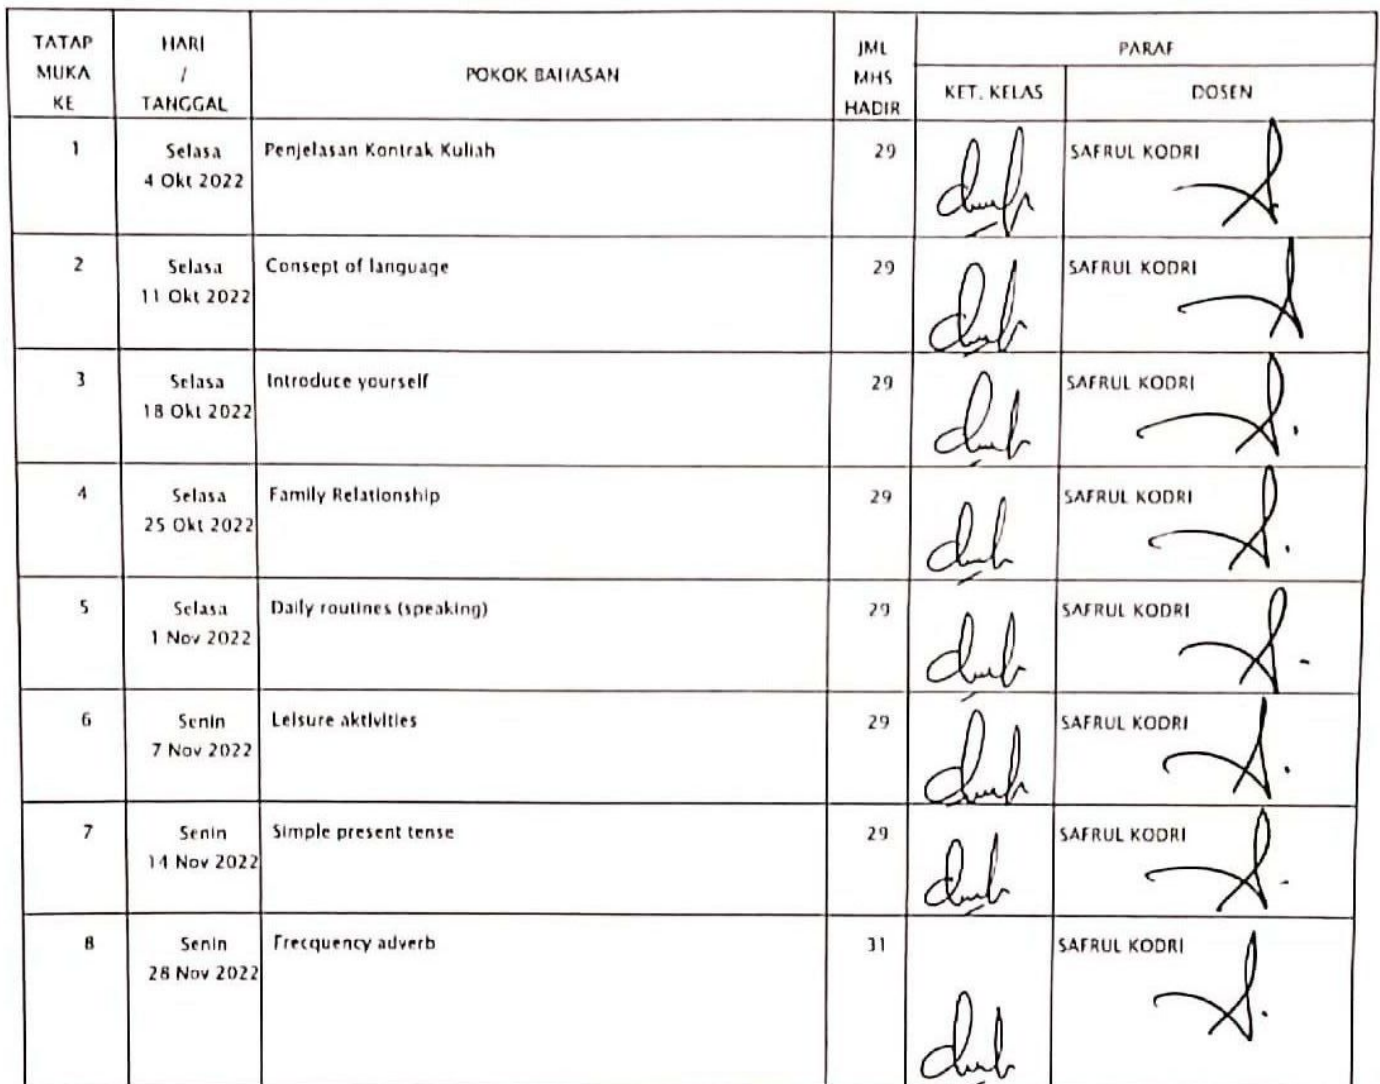 TATAP
MUKA
KE
HARI
/
TANGGAL
POKOK BAHASAN
JML
MHS
HADIR
PARAF
KET. KELAS
DOSEN
1
Selasa
4 Okt 2022
Penjelasan Kontrak Kuliah
29
SAFRUL KODRI
2
Selasa
11 Okt 2022
Consept of language
29
SAFRUL KODRI
3
Selasa
18 Okt 2022
Introduce yourself
29
SAFRUL KODRI
4
Selasa
25 Okt 2022
Family Relationship
29
SAFRUL KODRI
5
Selasa
1 Nov 2022
Daily routines (speaking)
29
SAFRUL KODRI
6
Senin
7 Nov 2022
Leisure aktivities
29
SAFRUL KODRI
7
Senin
14 Nov 2022
Simple present tense
29
SAFRUL KODRI
8
Senin
28 Nov 2022
Frecquency adverb
31
SAFRUL KODRI